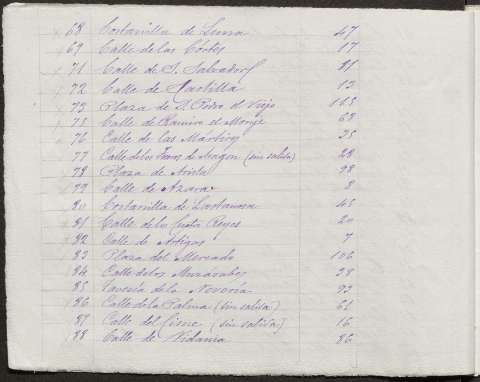 68 Costanilla de Luna 47
69 Calle de las Córtes 17
71 Calle de S. Salvador 21
72 Calle de 13
73 Plaza de S. Pedro el Viejo 113
75 Calle de Ramiro el Monje 68
76 Calle de las Mártires 25
77 Calle de los de Aragon (sin salida) 28
78 Plaza de 98
79 Calle de Azara 8
80 Costanilla de Lastanosa 45
81 Calle de los Cuatro Reyes 20
82 Calle de Artigas 7
83 Plaza del Mercado 106
84 Calle de los Mozárabes 38
85 de la Nevería 93
86 Calle de la Palma (sin salida) 61
87 Calle del (sin salida) 16
88 Calle de Vidania 86